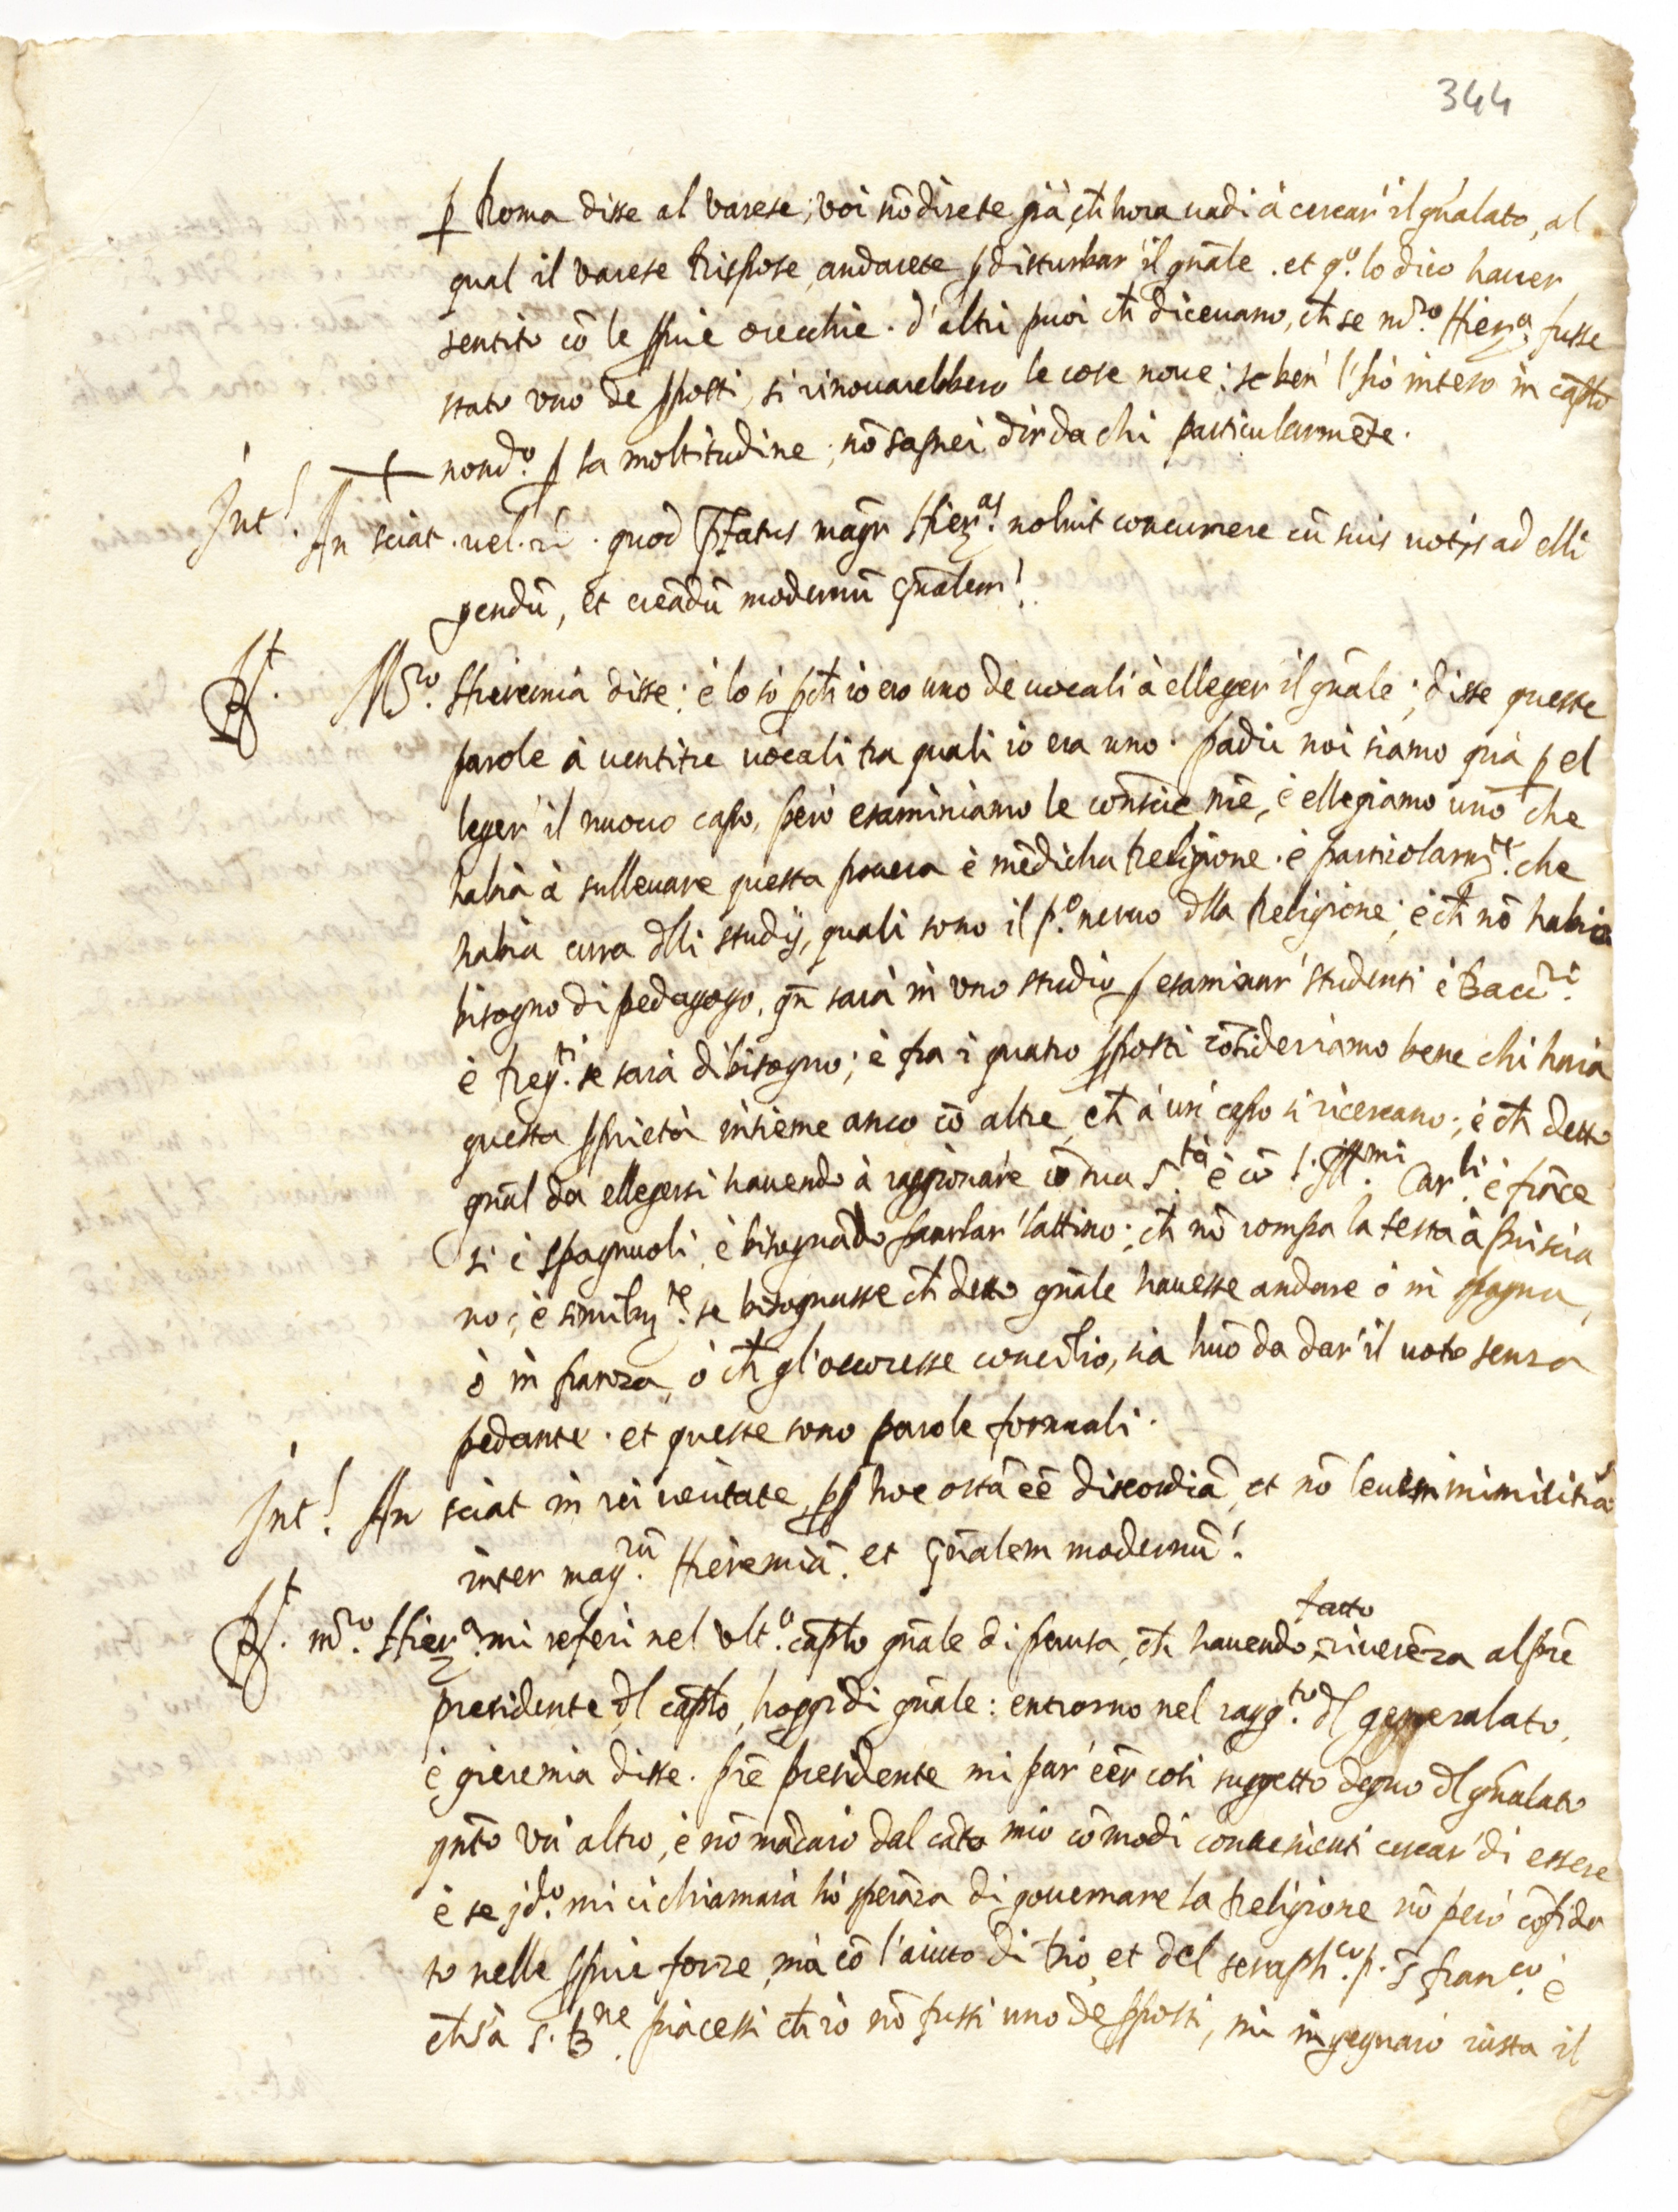 344
p Roma disse al Varese; voi nō direte già ch̄ hora uadi à cercar' il gn̄alato, al
qual il Varese Rispose, andarete p disturbar' il gn̄ale. et q.º lo dico hauer
sentito cō le pprie orecchie. d'altri puoi ch̄ diceuano, ch̄ se m̄ro Hier.ª fusse
stato vno de pposti, si rinouarebbero le cose noue; se ben' l'hò inteso in cap̄lo
nond.º p la moltitudine; nō saprei dir da chi particularmēte.
Int.! An sciat. uel. . quod p̄fatus magr̄ Hier.as noluit concurrere cū suis uotis ad elli
gendū, et creādū modernū gn̄alem!
Rt. M̄ro. Hieremia disse; è lo sò pch̄ io ero uno de uocali à elleger' il gn̄ale; disse queste
parole à uentitre uocali tra quali io era uno. Padri noi siamo quà p el
leger' il nuouo capo, però esaminiamo le consciē nr̄e, è ellegiamo uno che
habia à sulleuare questa pouera è mēdicha Religione. è particolarm.te che
habia cura dlli studij, quali sono il p.º neruo dlla Religione; è ch̄ nō habia
bisogno di pedagogo, qn̄ sarà in vno studio p esaminar' studenti è Bacc.ri
è Reg.ti se sarà di bisogno; è fra i quatro pposti cōsideriamo bene chi haià
questa pprietà insieme anco cō altre, ch̄ a un' capo si ricercano; è ch̄ detto
gn̄al da ellegersi hauendo à raggionare cō sua S.tà è cō l'Ill.mi Car.li è frāce
si è spagnuoli, è bisognādo parlar' lattino; ch̄ nō rompa la testa à priscia
no; è similm.te se bisognasse ch̄ detto gn̄ale hauesse andare ò in spagna,
ò in franza, ò ch̄ gl'occoresse concilio, sia huō da dar' il uoto senza
pedante. et queste sono parole formali.
Int.! An sciat in rei ueritate, pp hoc ortā eē discordiā, et nō leuem inimicitiā
inter mag.rū Hieremiā. et gn̄alem modernū!
Rt. m̄ro. Hier.ª mi referi nel vlt.º cap̄lo gn̄ale di pauia, ch̄ hauendo fatto riuerēza al pr̄e
presidente dl cap̄lo, hoggidi gn̄ale: entrorno nel ragg.to dl generalato,
è gieremia disse. pr̄e presidente mi par' eēr cosi suggetto degno dl gn̄alato
qn̄to vn' altro, è nō mācarò dal cāto mio cō modi conuenienti cercar' di essere
è se jd.º mi ci chiamarà hò sperāza di gouernare la Religione nō però cōfida
to nelle pprie forze, mà cō l'aiuto di Dio, et del seraph.co p. S. fran.co è
ch̄ s'à S. B.ne piacessi ch̄ io nō fussi uno de pposti, mi ingegnarò iusta il